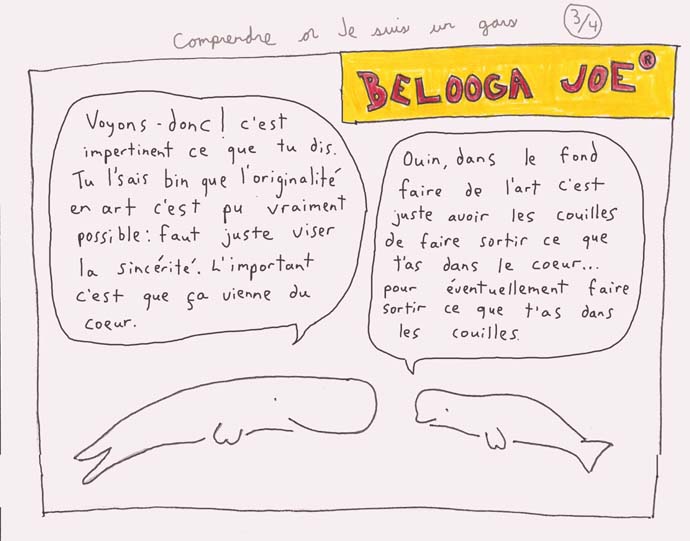 Comprendre or Je suis un gars 3/4
BELOOGA JOE®
Voyons-donc! c'est
impertinent ce que tu dis.
Tu l'sais bin que l'originalité
en art c'est pu vraiment
possible: faut juste viser
la sincérité. L'important
c'est que ça vienne du
coeur.
Ouin, dans le fond
faire de l'art c'est
juste avoir les couilles
de faire sortir ce que
t'as dans le coeur...
pour éventuellement faire
sortir ce que t'as dans
les couilles.